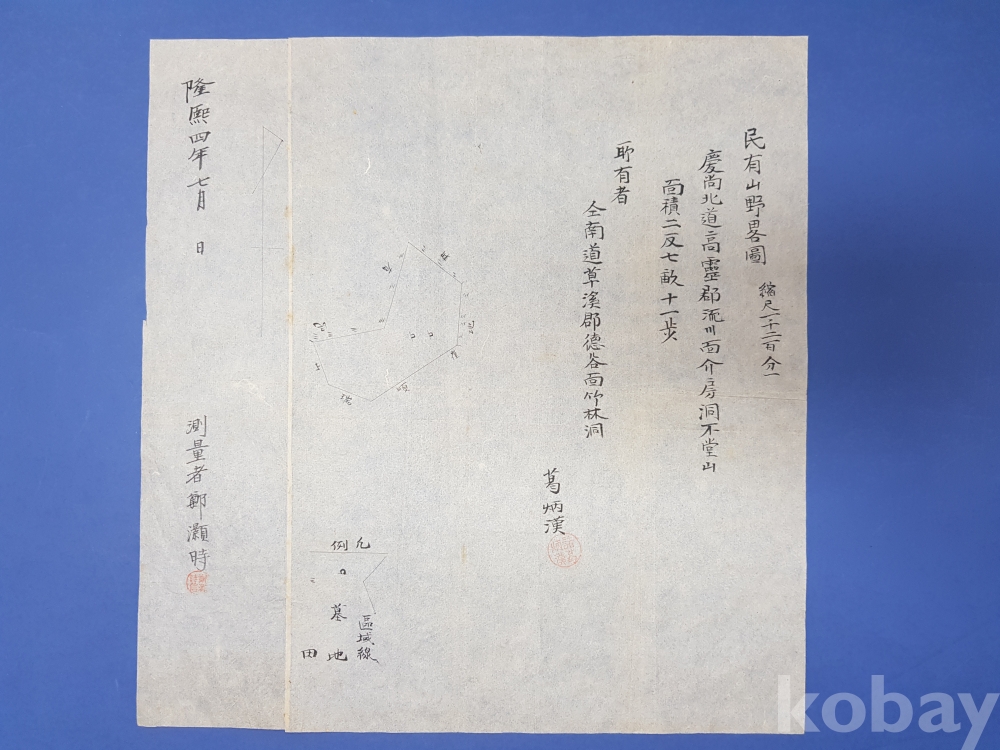 民有山野畧圖
縮尺一千二百分一
慶尚北道高靈郡流川面介房洞不堂山
面積二反七畝十一步
所有者
仝南道草溪郡德谷面竹林洞
葛炳漢
凡例
區域線
墓地
田
隆熙四年七月 日
測量者鄭灝時
kobay